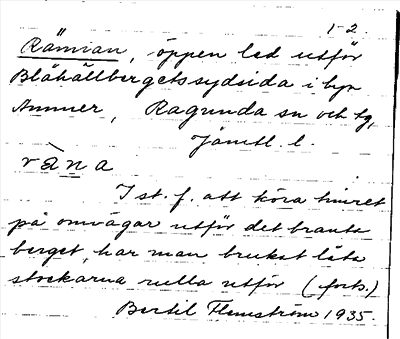 1-2.
Rämnan, öppen led utför
Blåhällbergets sydsida i byn
Ammer, Ragunda sn och tg,
Jämtl. l.
ràna
I st. f. att köra timret
på omvägar utför det branta
berget, har man brukat låta
stockarna rulla utför (forts.)
Bertil Flemström 1935.